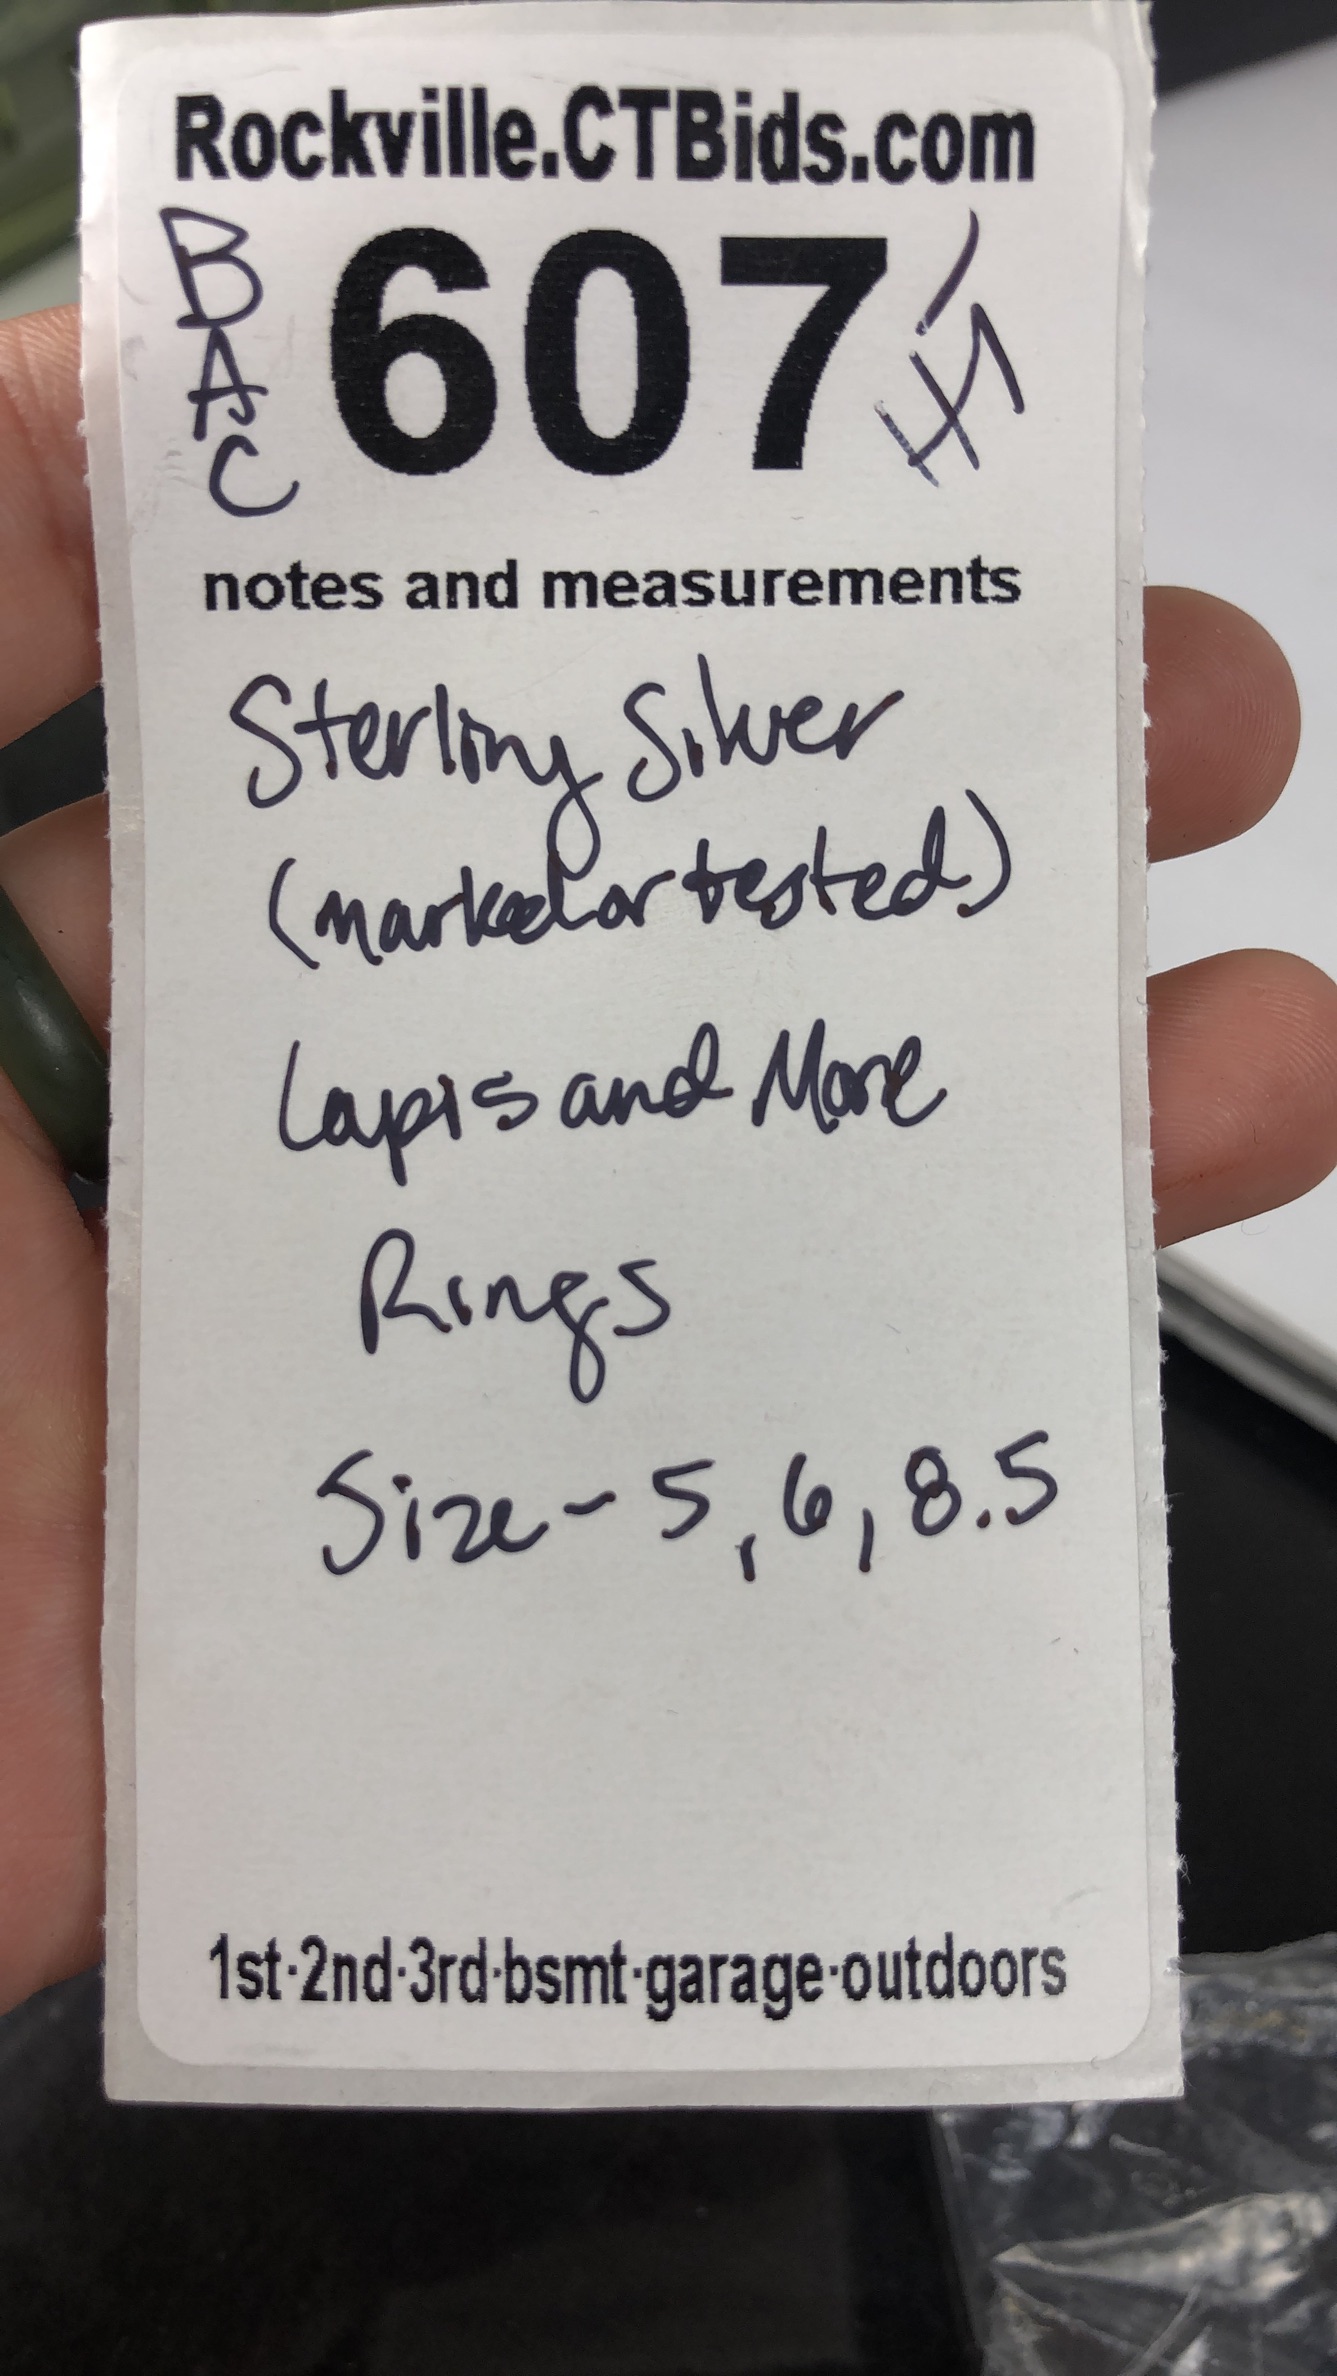 Rockville.CTBids.com
BAC
607
notes and measurements
Sterling Silver
(marked or tested)
Lapis and More
Rings
Size - 5, 6, 8.5
1st·2nd·3rd·bsmt·garage·outdoors